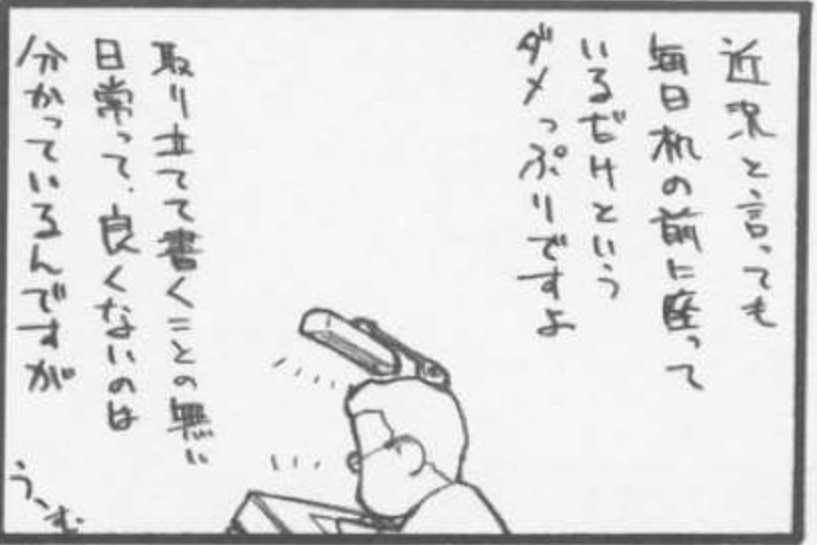 近況と言っても
毎日机の前に座って
いるだけという
ダメっぷりですよ
取り立てて書くことの無い
日常って、良くないのは
分かっているんですが
うーむ